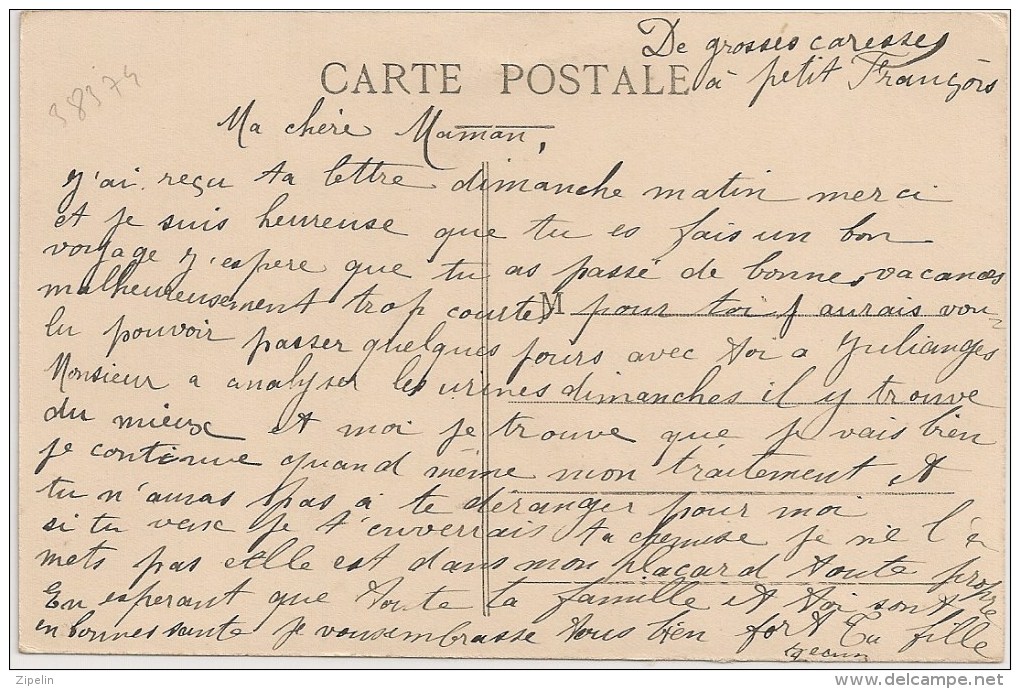 De grosses caresses
CARTE POSTALE
à petit François
38374
Ma chère Maman,
J'ai reçu ta lettre dimanche matin merci
et je suis heureuse que tu es fais un bon
voyage j'espere que tu as passé de bonnes vacances
malheureusement trop courtes pour toi j'aurais vou-
M
lu pouvoir passer quelques jours avec toi a Julianges
Monsieur a analyser les urines dimanches il y trouve
du mieux et moi je trouve que je vais bien
je continue quand même mon traitement et
tu n'auras pas à te déranger pour moi
si tu veux je t'enverrais ta chemise je ne l'é
mets pas et elle est dans mon placard toute propre
En esperant que toute ta famille et toi sont
en bonnes sante je vous embrasse tous bien fort Ta fille
Zipelin
www.delcampe.net